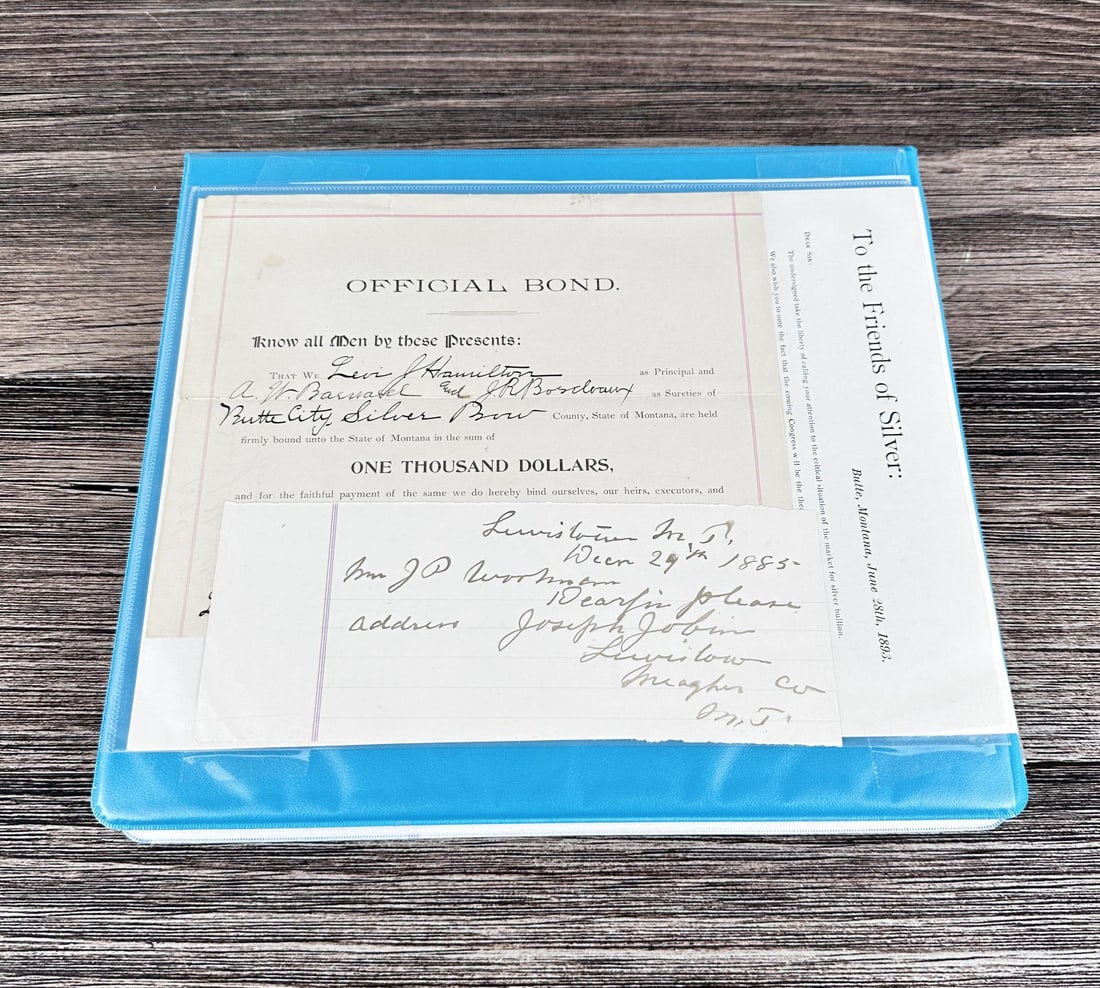 OFFICIAL BOND.
Know all Men by these Presents:
THAT WE, Levi J Hamilton as Principal and
A. W. Barnard and J. R. Bordeaux as Sureties of
Butte City, Silver Bow County, State of Montana, are held
firmly bound unto the State of Montana in the sum of
ONE THOUSAND DOLLARS,
and for the faithful payment of the same we do hereby bind ourselves, our heirs, executors, and
Lewistown M. T.
Decn 29th 1885
Mr J P Woolman
Dear Sir please
address Joseph Jobin
Lewistow
Meagher Co
M. T.
To the Friends of Silver:
Butte, Montana, June 28th, 1893.
DEAR SIR:
The undersigned take the liberty of calling your attention to the critical situation of the market for silver bullion.
We also wish you to note the fact that the coming Congress will be the